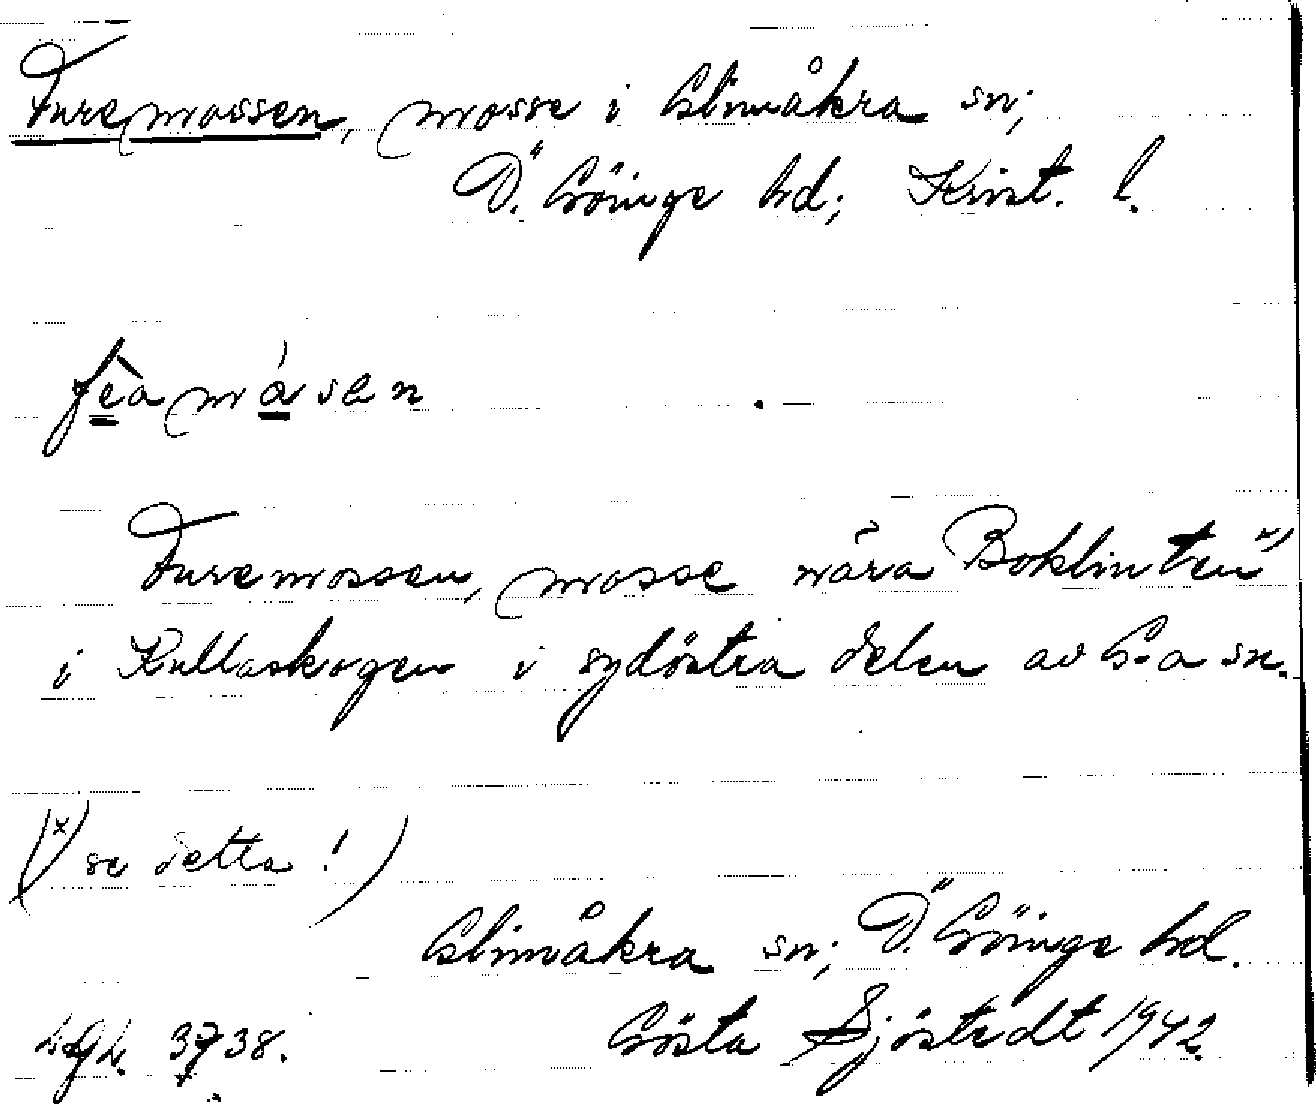 Furemossen, mosse i Glimåkra sn;
Ö. Göinge hd; Krist. l.
fèamåsen
Furemossen, mosse nära Boklinten x)
i Kullaskogen i sydöstra delen av G-a sn.
(x) se detta!)
Glimåkra sn; Ö. Göinge hd.
3738. Gösta Sjöstedt 1942.